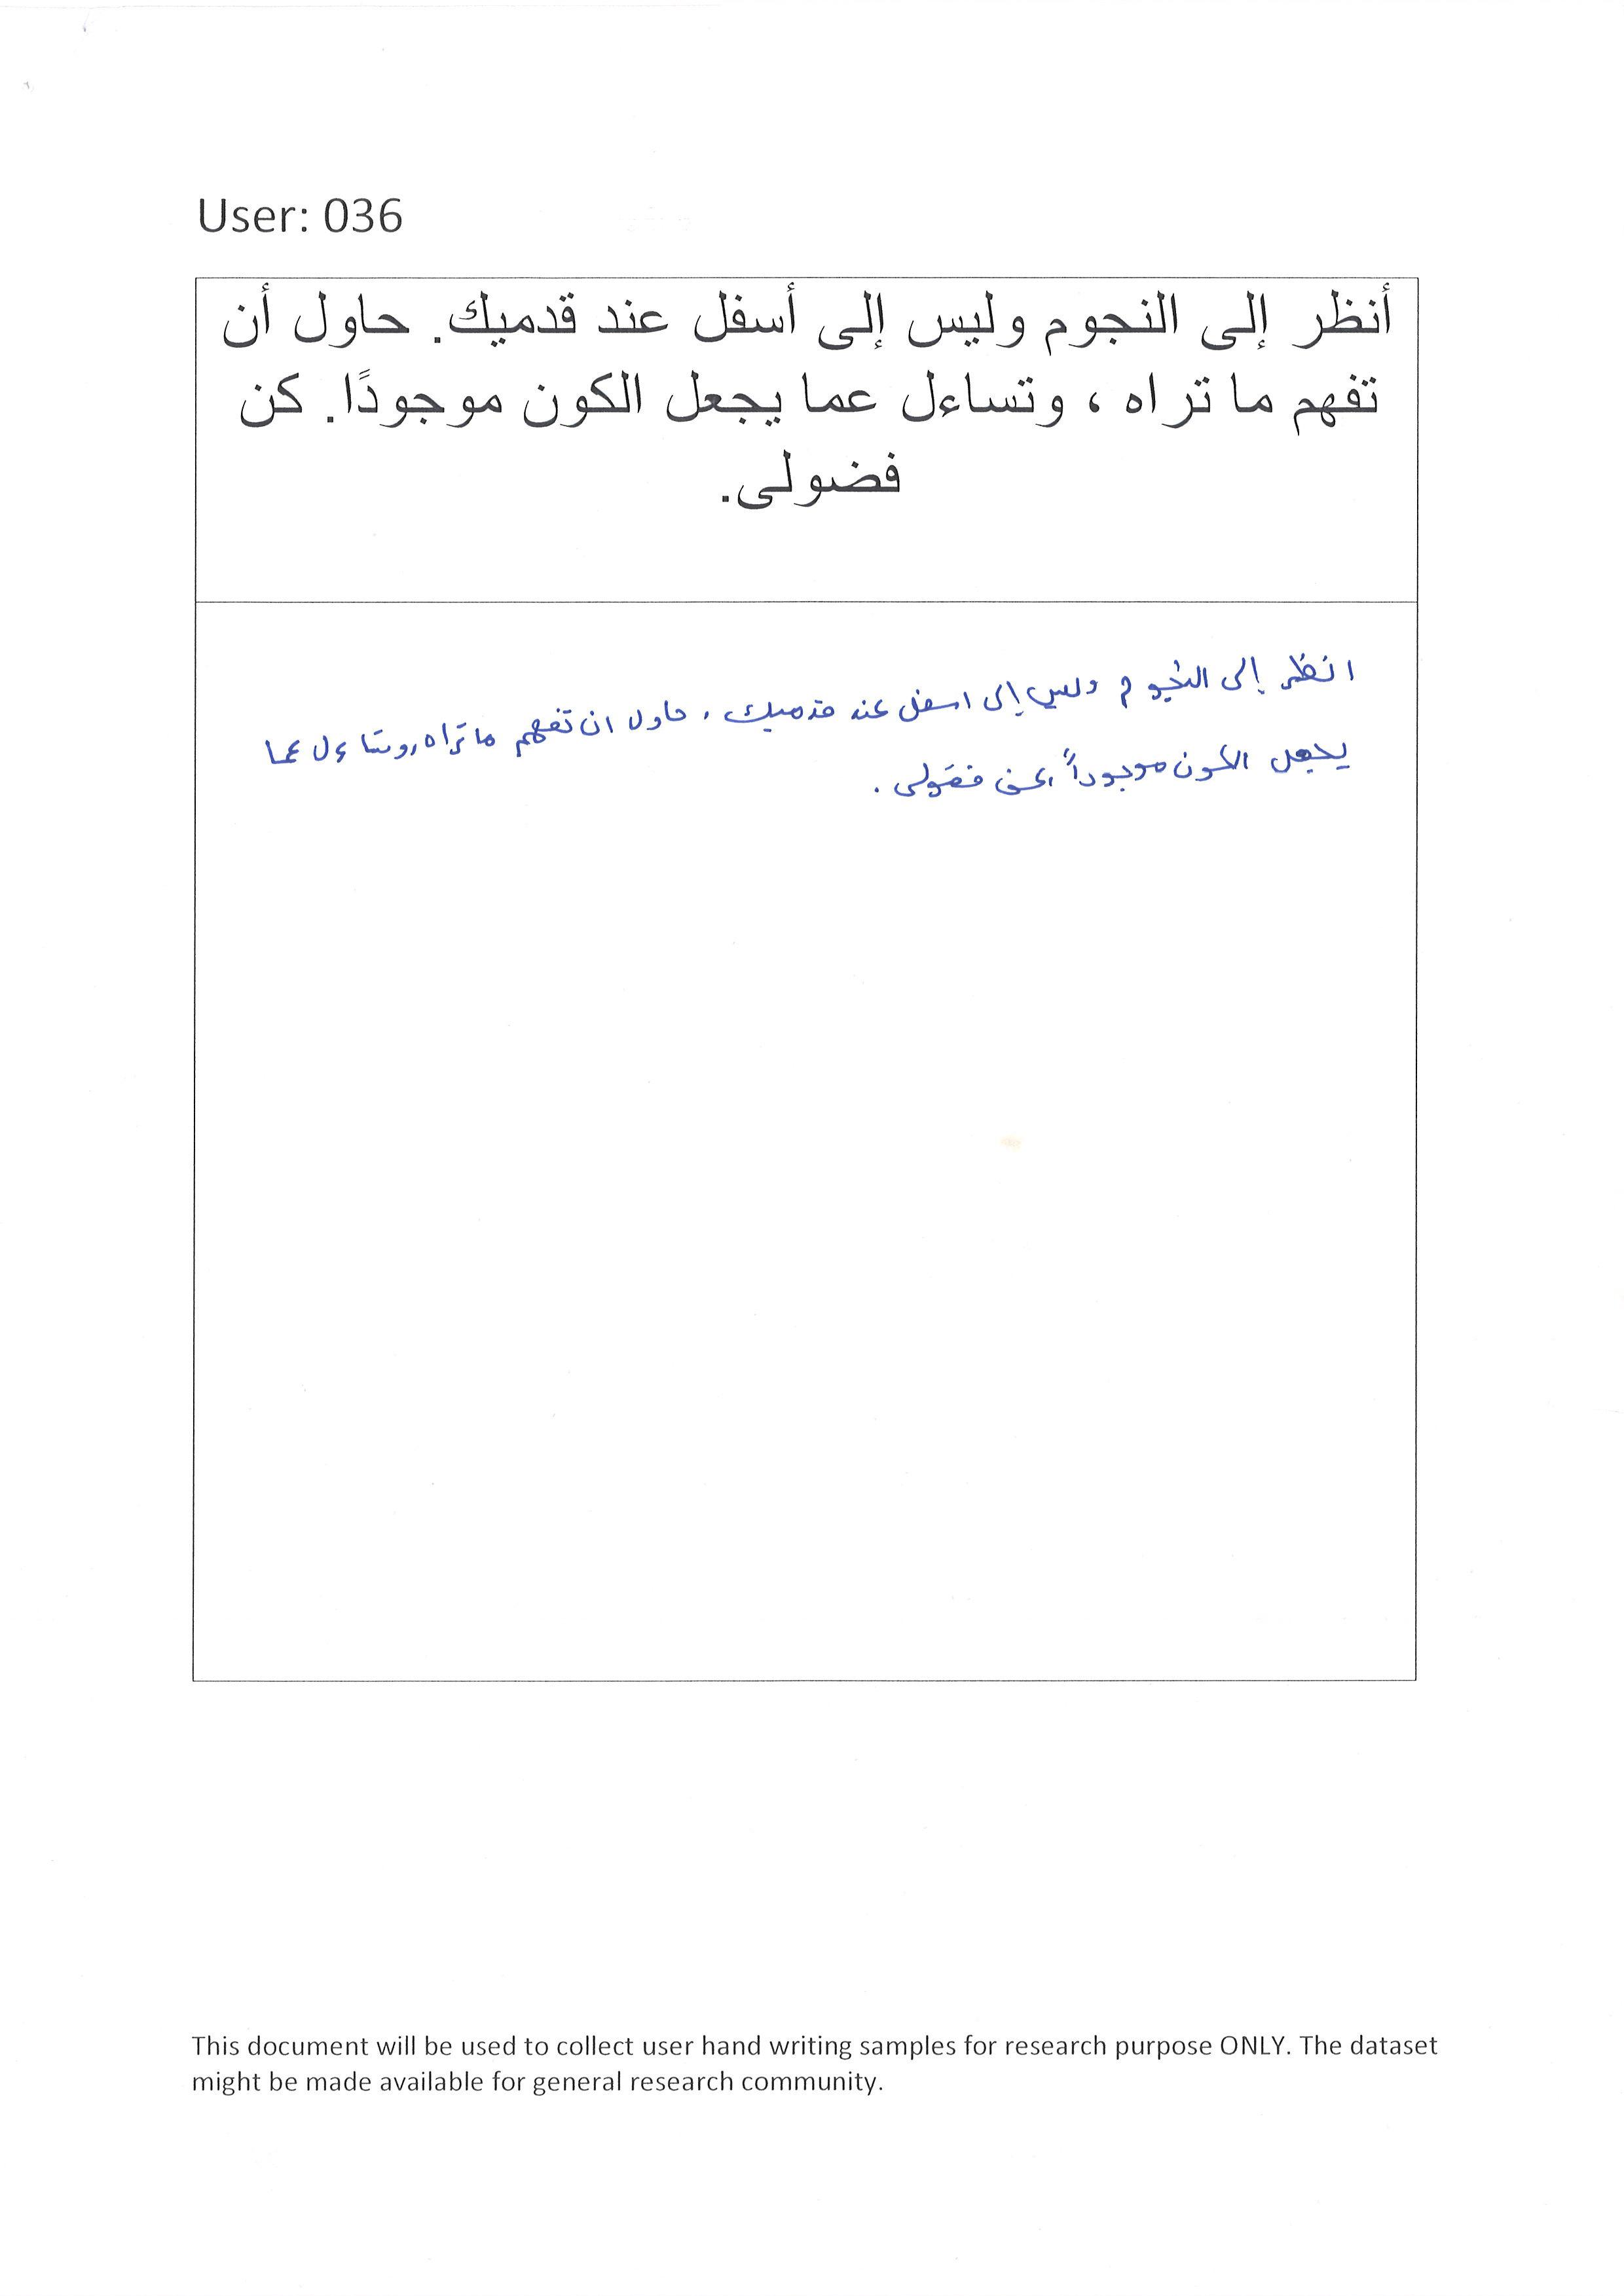 User: 036
أنظر إلى النجوم وليس إلى أسفل عند قدميك. حاول أن
تفهم ما تراه ، وتساءل عما يجعل الكون موجودًا. كن
فضولى.
انظر إلى النجوم وليس إلى اسفل عند قدميك . حاول ان تفهم ما تراه , وتساءل عما
يجعل الكون موجوداً . كن فضولى .
This document will be used to collect user hand writing samples for research purpose ONLY. The dataset
might be made available for general research community.